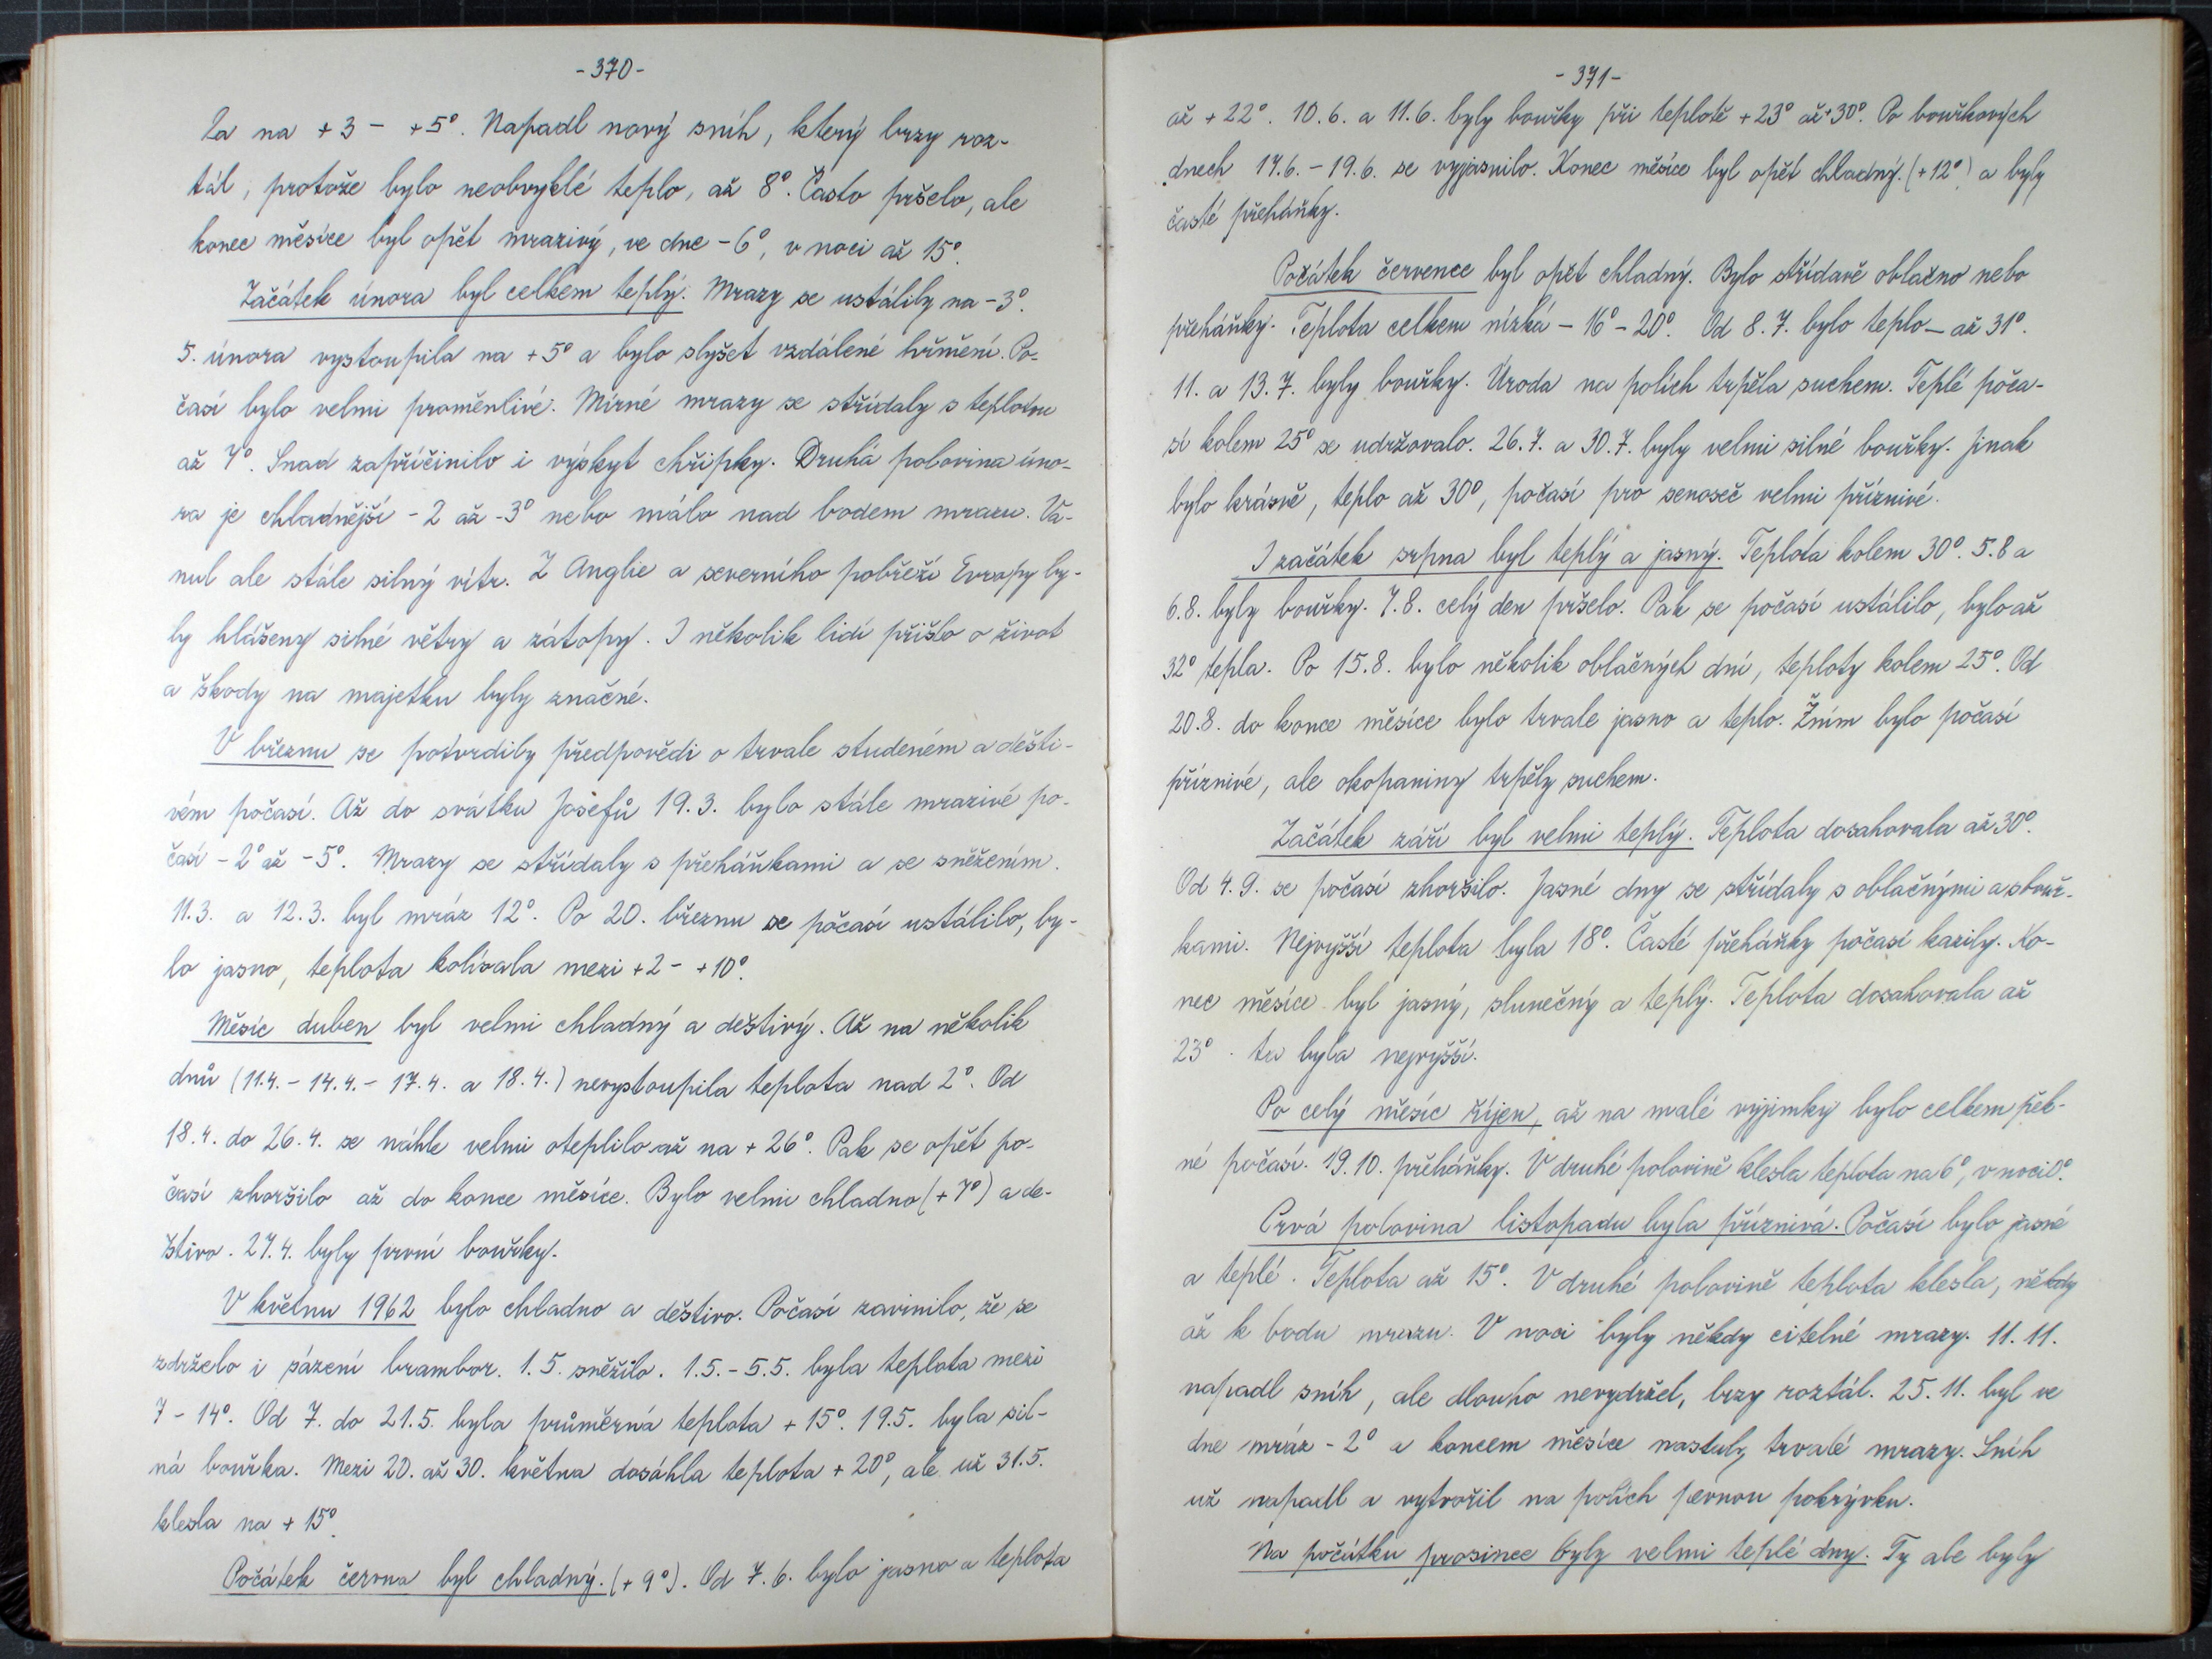 - 370 -
la na + 3 - + 5°. Napadl nový sníh, který brzy roz-
tál, protože bylo neobvyklé teplo, až 8°. Často pršelo, ale
konec měsíce byl opět mrazivý, ve dne - 6°, v noci až 15°.
Začátek února byl celkem teplý. Mrazy se ustálily na - 3°.
5. února vystoupila na + 5° a bylo slyšet vzdálené hřmění. Po-
časí bylo velmi proměnlivé. Mírné mrazy se střídaly s teplotou
až 7°. Snad zapříčinilo i výskyt chřipky. Druhá polovina úno-
ra je chladnější - 2 až - 3° nebo málo nad bodem mrazu. Vá-
nul ale stále silný vítr. Z Anglie a severního pobřeží Evropy by-
ly hlášeny silné větry a zátopy. I několik lidí přišlo o život
a škody na majetku byly značné.
V březnu se potvrdily předpovědi o trvale studeném a dešti-
vém počasí. Až do svátku Josefů 19.3. bylo stále mrazivé po-
časí - 2° až - 5°. Mrazy se střídaly s přeháňkami a se sněžením.
11.3. a 12.3. byl mráz 12°. Po 20. březnu se počasí ustálilo, by-
lo jasno, teplota kolísala mezi + 2 - + 10°.
Měsíc duben byl velmi chladný a deštivý. Až na několik
dnů (11.4. - 14.4. - 17.4. a 18.4.) nevystoupila teplota nad 2°. Od
18.4. do 26.4. se náhle velmi oteplilo až na + 26°. Pak se opět po-
časí zhoršilo až do konce měsíce. Bylo velmi chladno (+ 7°) a de-
štivo. 27.4. byly první bouřky.
V květnu 1962 bylo chladno a deštivo. Počasí zavinilo, že se
zdrželo i sázení brambor. 1.5. sněžilo. 1.5. - 5.5. byla teplota mezi
7 - 14°. Od 7. do 21.5. byla průměrná teplota + 15°. 19.5. byla sil-
ná bouřka. Mezi 20. až 30. května dosáhla teplota + 20°, ale už 31.5.
klesla na + 15°.
Počátek června byl chladný. (+ 9°). Od 7.6. bylo jasno a teplota
- 371 -
až + 22°. 10.6. a 11.6. byly bouřky při teplotě + 23° až + 30°. Po bouřkových
dnech 17.6. - 19.6. se vyjasnilo. Konec měsíce byl opět chladný. (+ 12°) a byly
časté přeháňky.
Počátek července byl opět chladný. Bylo střídavě oblačno nebo
přeháňky. Teplota celkem nízká - 16° - 20°. Od 8.7. bylo teplo - až 31°.
11. a 13.7. byly bouřky. Úroda na polích trpěla suchem. Teplé poča-
sí kolem 25° se udržovalo. 26.7. a 30.7. byly velmi silné bouřky. Jinak
bylo krásně, teplo až 30°, počasí pro senoseč velmi příznivé.
I začátek srpna byl teplý a jasný. Teplota kolem 30°. 5.8 a
6.8. byly bouřky. 7.8. celý den pršelo. Pak se počasí ustálilo, bylo až
32° tepla. Po 15.8. bylo několik oblačných dní, teploty kolem 25°. Od
20.8. do konce měsíce bylo trvale jasno a teplo. Žním bylo počasí
příznivé, ale okopaniny trpěly suchem.
Začátek září byl velmi teplý. Teplota dosahovala až 30°.
Od 4.9. se počasí zhoršilo. Jasné dny se střídaly s oblačnými a s bouř-
kami. Nejvyšší teplota byla 18°. Časté přeháňky počasí kazily. Ko-
nec měsíce byl jasný, slunečný a teplý. Teplota dosahovala až
23° - ta byla nejvyšší.
Po celý měsíc říjen, až na malé vyjímky bylo celkem pěk-
né počasí. 19.10. přeháňky. V druhé polovině klesla teplota na 6°, v noci 0°.
Prvá polovina listopadu byla příznivá. Počasí bylo jasné
a teplé. Teplota až 15°. V druhé polovině teplota klesla, někdy
až k bodu mrazu. V noci byly někdy citelné mrazy. 11.11.
napadl sníh, ale dlouho nevydržel, brzy roztál. 25.11. byl ve
dne mráz - 2° a koncem měsíce nastaly trvalé mrazy. Sníh
už napadl a vytvořil na polích pevnou pokrývku.
Na počátku prosince byly velmi teplé dny. Ty ale byly